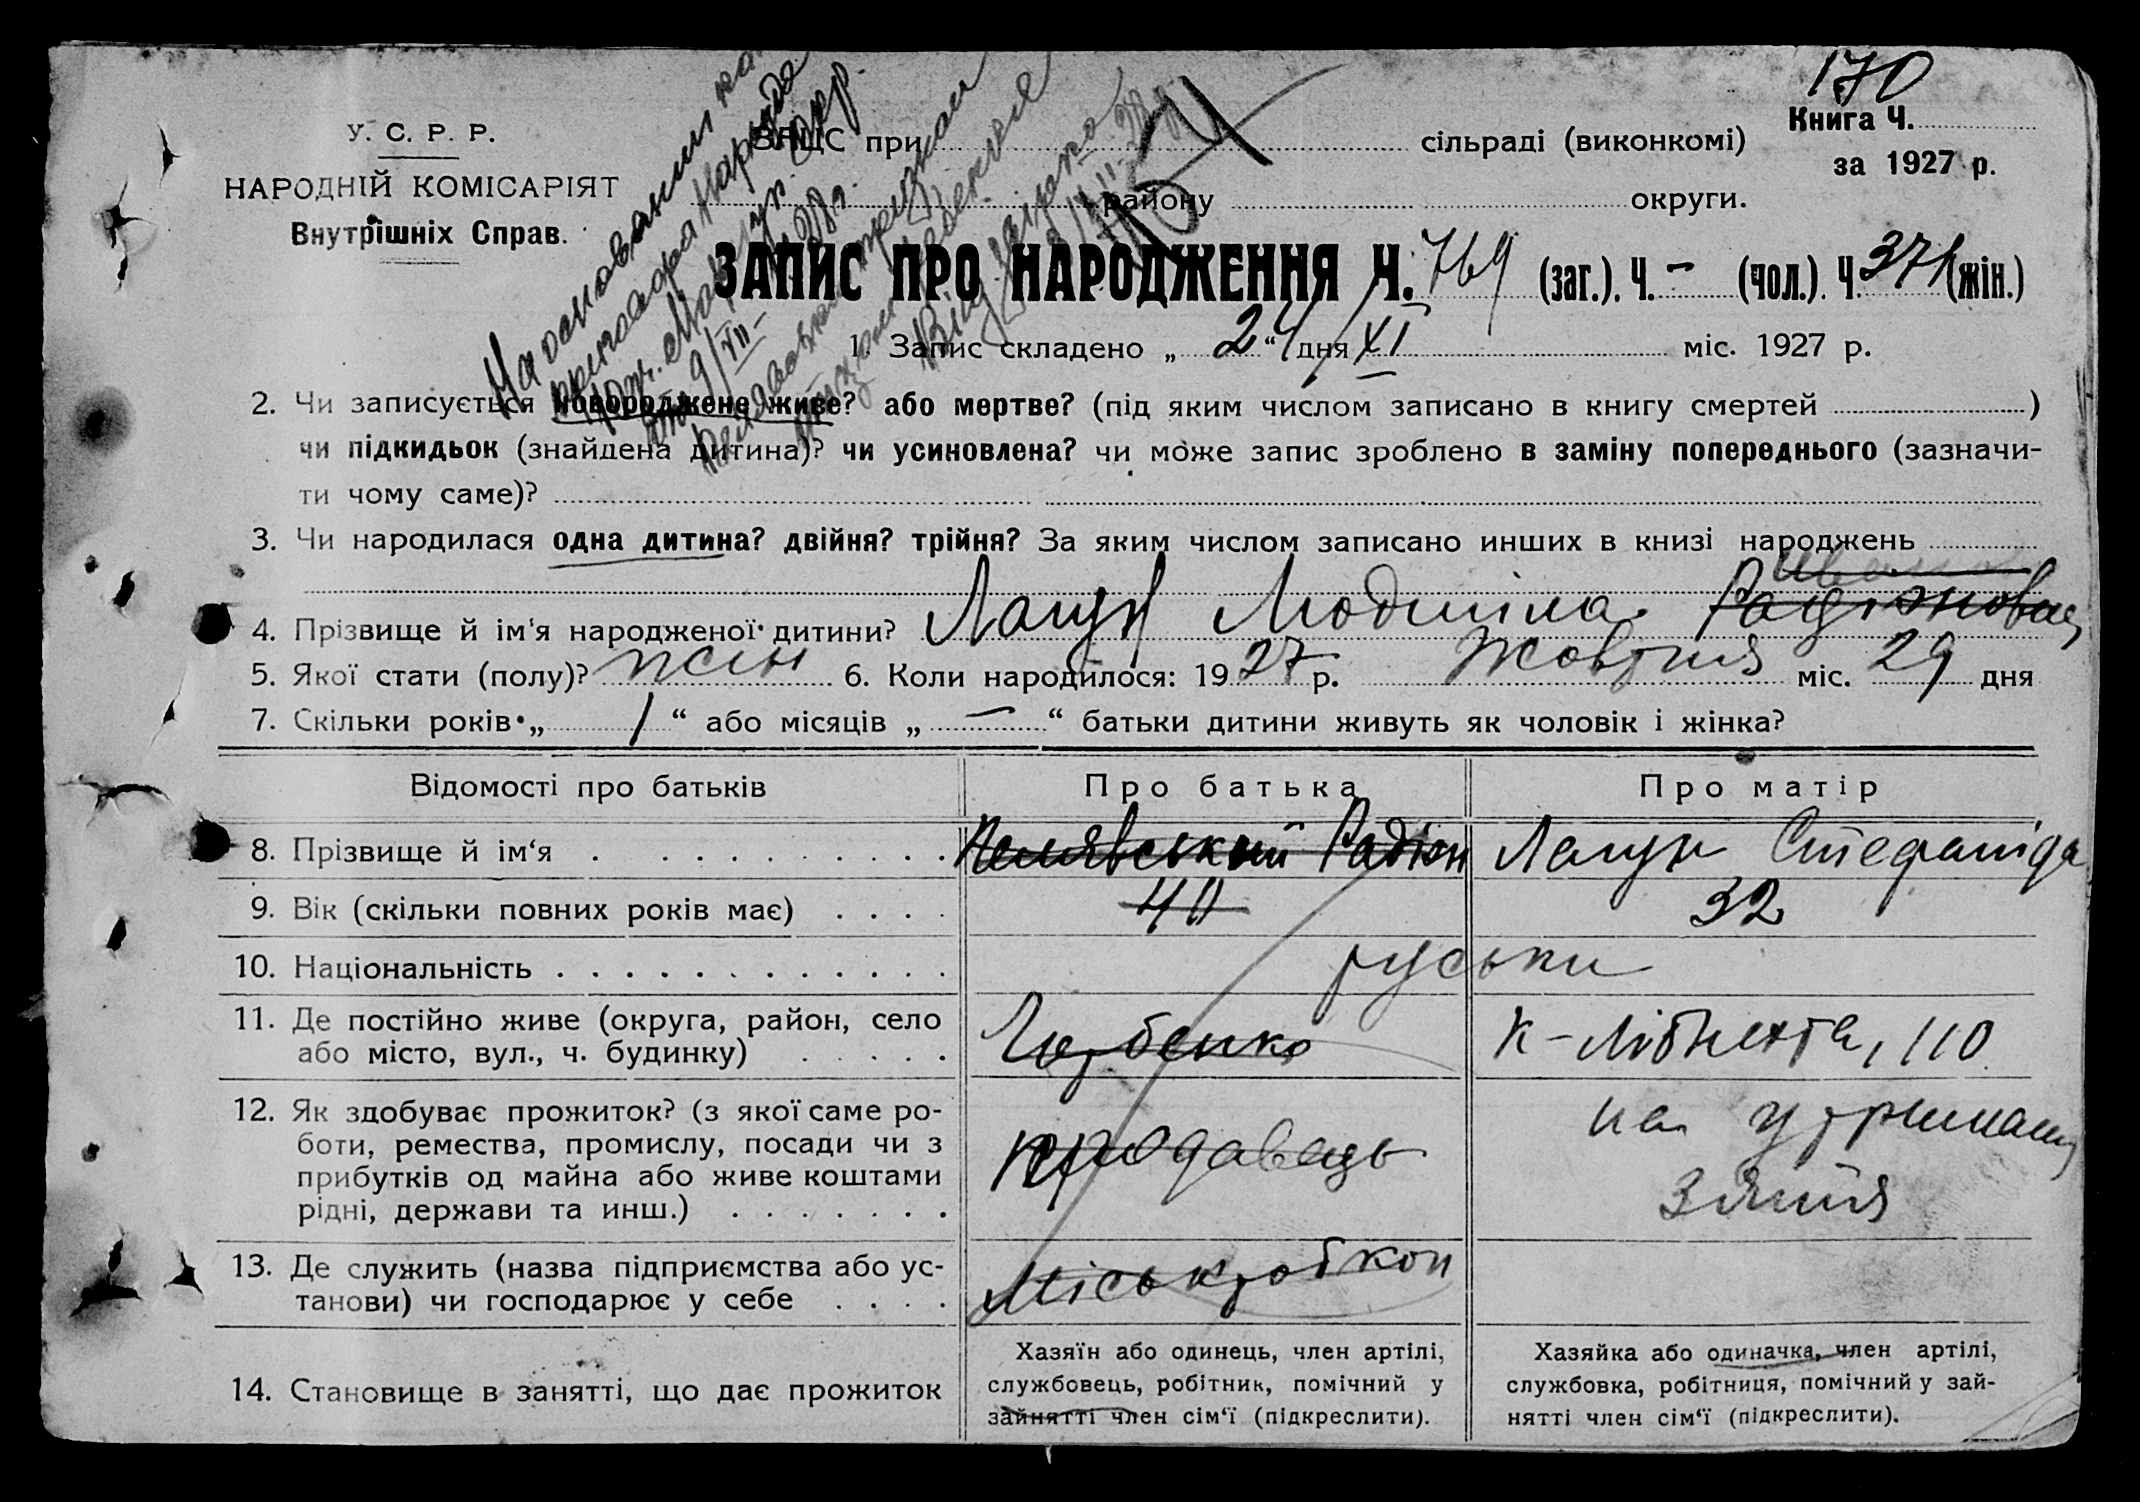 170
У. С. Р. Р.
НАРОДНІЙ КОМІСАРІЯТ
Внутрішніх Справ.
ЗАЦС при сільраді (виконкомі)
Книга Ч.
за 1927 р.
району округи.
На основании
приговора Нарсуда
ЗАПИС ПРО НАРОДЖЕННЯ Ч. 769 (заг.). Ч. – (чол.). Ч. 371 (жін.)
1. Запис складено „ 24 “ дня XI міс. 1927 р.
2. Чи записується новороджене живе? або мертве? (під яким числом записано в книгу смертей )
чи підкидьок (знайдена дитина)? чи усиновлена? чи може запис зроблено в заміну попереднього (зазначи-
ти чому саме)?
3. Чи народилася одна дитина? двійня? трійня? За яким числом записано инших в книзі народжень
4. Прізвище й ім'я народженої дитини? Лагун Людміла Радіоновна
5. Якої стати (полу)? жін 6. Коли народилося: 1927 р. Жовтня міс. 29 дня
7. Скільки років „ 1 “ або місяців „ – “ батьки дитини живуть як чоловік і жінка?
Відомості про батьків Про батька Про матір
8. Прізвище й ім‘я Радіон Лагун Стефаніда
9. Вік (скільки повних років має) 40 32
10. Національність руськи
11. Де постійно живе (округа, район, село
або місто, вул., ч. будинку) К-Лібкнехта, 110
12. Як здобуває прожиток? (з якої саме ро-
боти, ремества, промислу, посади чи з
прибутків од майна або живе коштами
рідні, держави та инш.) продавець на утриманні
зятя
13. Де служить (назва підприємства або ус-
танови) чи господарює у себе Міськробкоп
14. Становище в занятті, що дає прожиток
Хазяїн або одинець, член артілі,
службовець, робітник, помічний у
зайнятті член сім‘ї (підкреслити).
Хазяйка або одиначка, член артілі,
службовка, робітниця, помічний у зай-
нятті член сім‘ї (підкреслити).